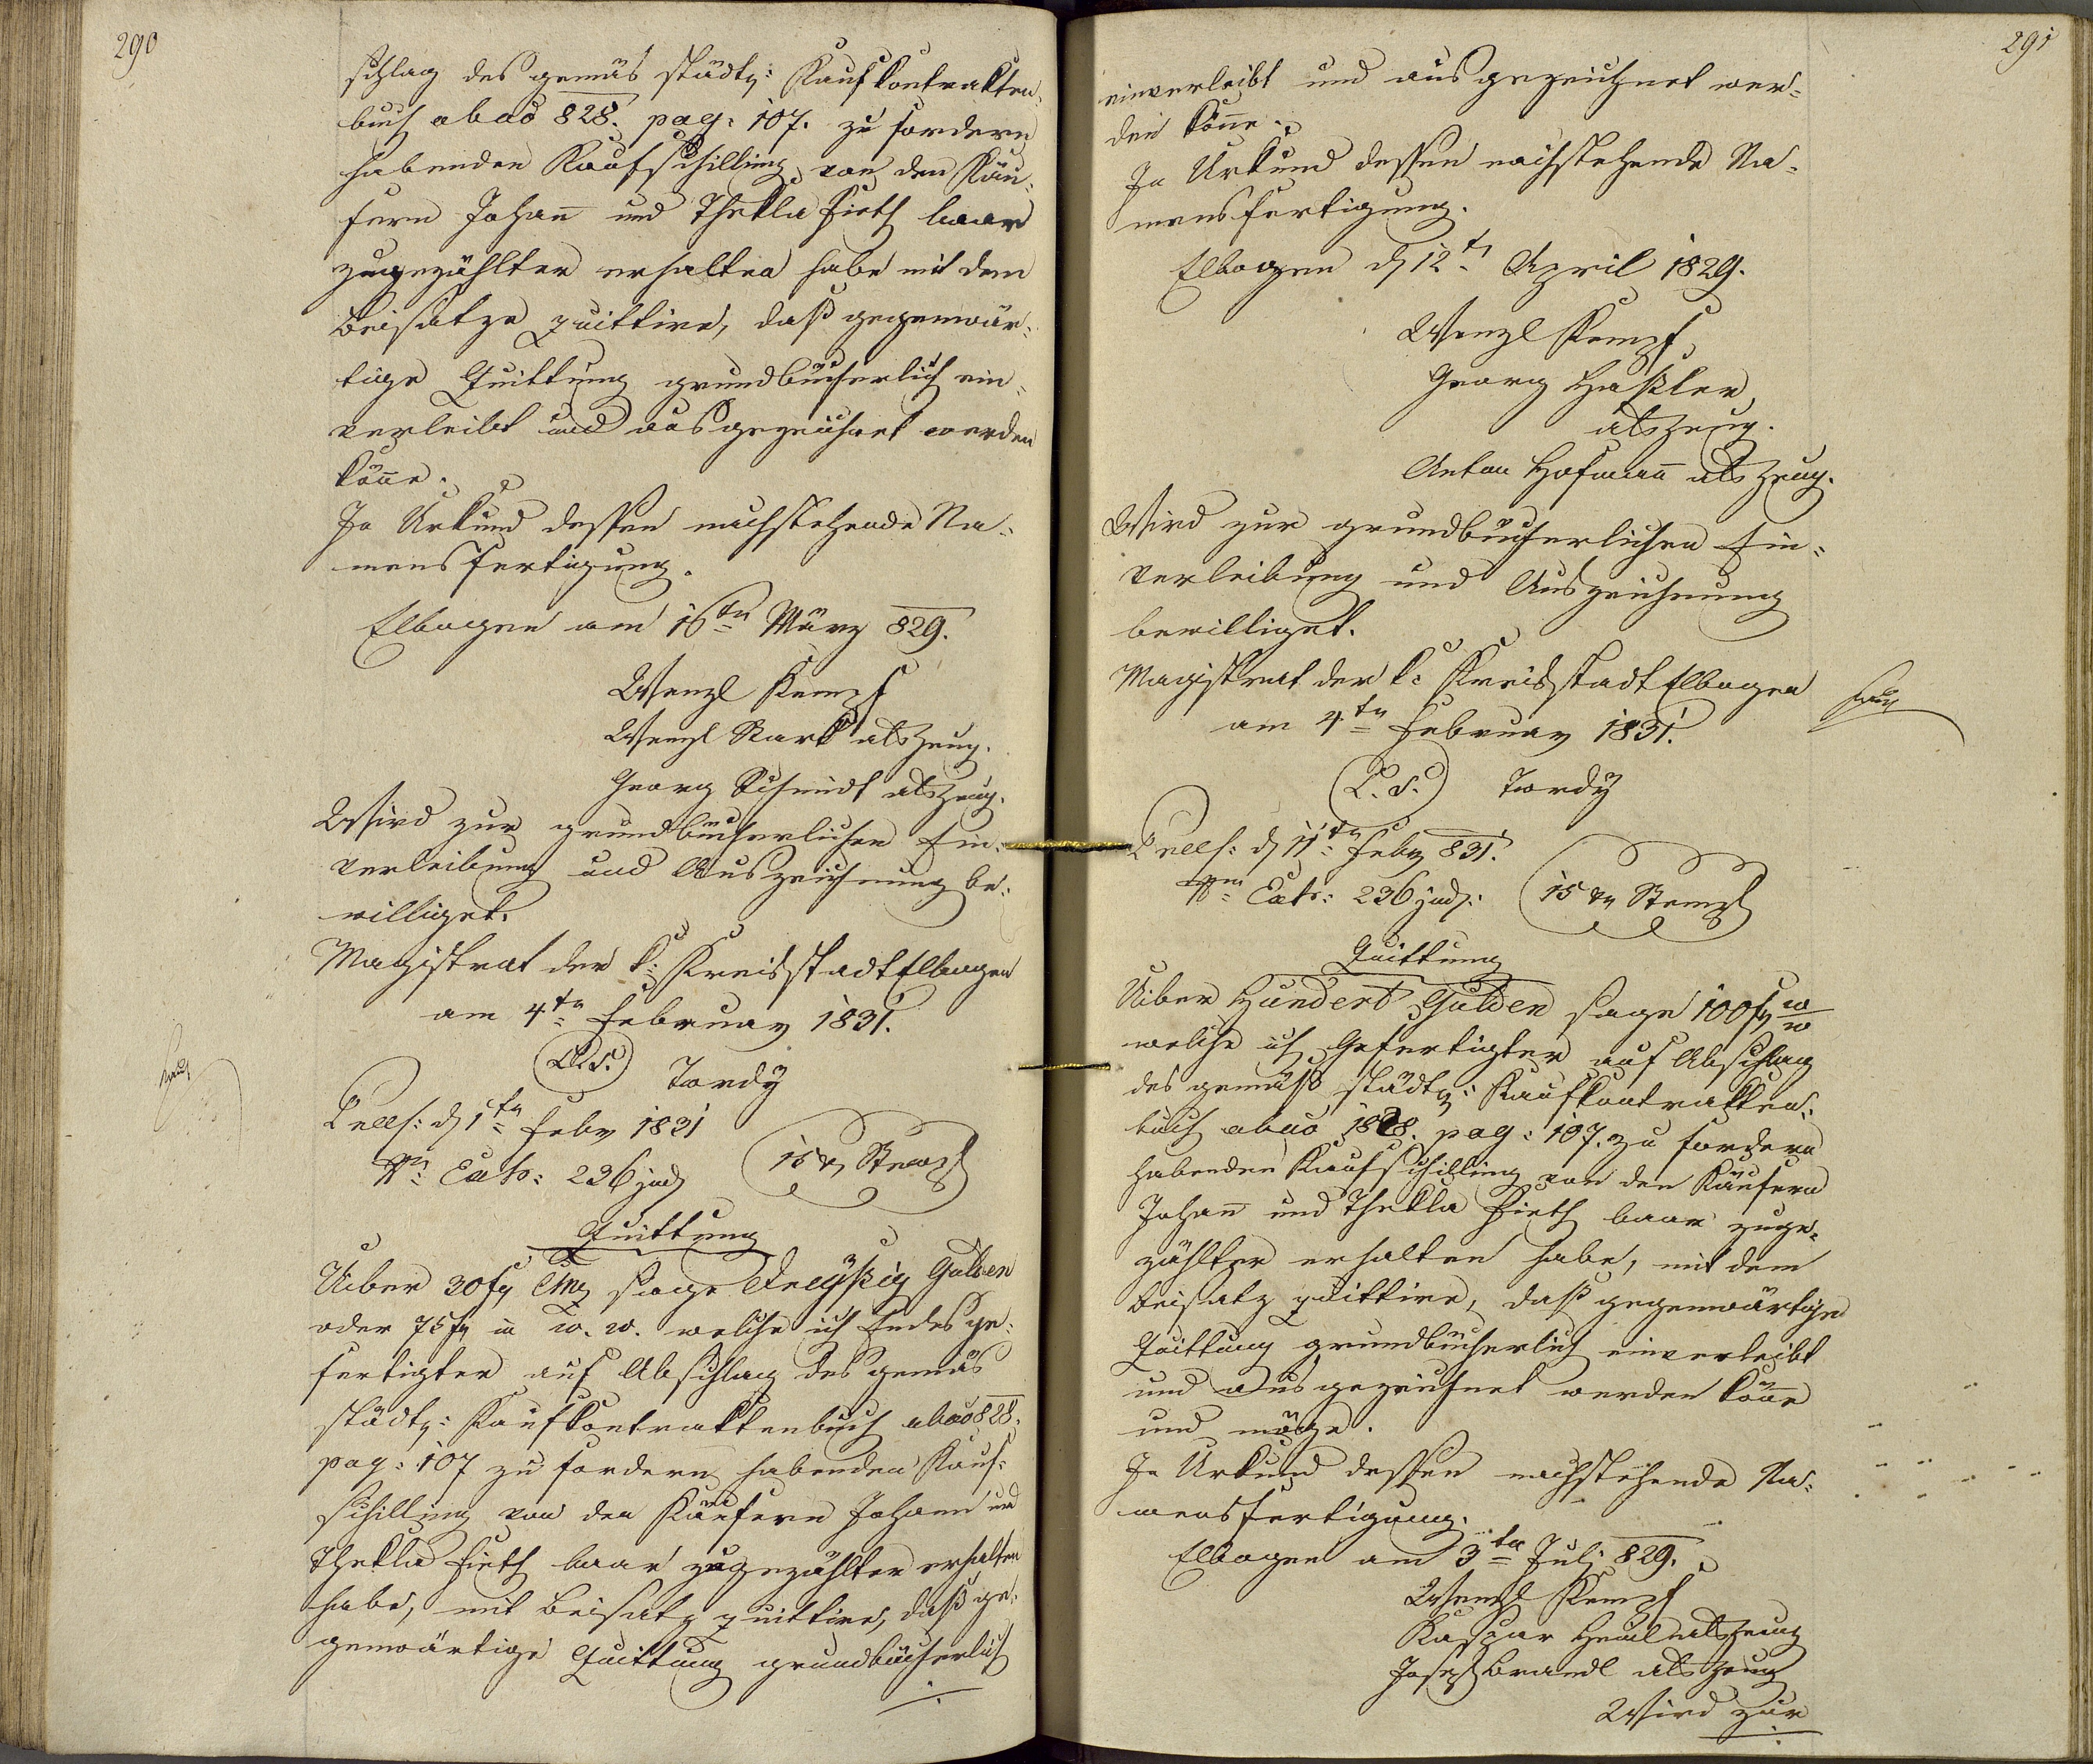 290
schlag des gemäs städt: Kaufkontrakten-
buch abao 828. pag: 107. zu fordern
habenden Kaufschilling von den Käu-
fern Johañ und Thekla Fieth baar
zugezählter erhalten habe mit dem
Beisatze quittire, daß gegenwär-
tige Quittung grundbücherlich ein-
verleibt und ausgezeichnet werden
köñe.
In Urkund dessen nachstehende Na-
mensfertigung.
Elbogen am 16tn März 829.
Wenzl Kempf
Wenzl Stark als Zeug.
Georg Schmidt als Zeug.
Wird zur grundbücherlichen Ein-
verleibung und Auszeichnung be-
williget.
Magistrat der k: Kreisstadt Elbogen
am 4tn Februar 1831.
L.S. Tordÿ
d 1tn Febr 1831
Exh: 236 jud
15 xr Stempl
Quittung
Uiber 30 f CMz sage Dreÿßig Gulden
oder 75 f in W. W. welche ich Endesge-
fertigter auf Abschlag des gemäs
städt: Kaufkontraktenbuch abao 828.
pag: 107 zu fordern habenden Kauf-
schilling von den Käufern Johann und
Thekla Fieth baar zugezählter erhalten
habe, mit Beisatz quittire, daß ge-
genwärtige Quittung grundbücherlich
291
einverleibt und ausgezeichnet wer-
den köñe.
In Urkund dessen nachstehende Na-
mensfertigung.
Elbogen d 12t April 1829.
Wenzl Kempf
Georg Haßler
als Zeug.
Anton Hofmañ als Zeug.
Wird zur grundbücherlichen Ein-
verleibung und Auszeichnung
bewilliget.
Magistrat der k: Kreisstadt Elbogen
am 4tn Februar 1831.
L.S. Tordÿ
d 11tn Febr 831.
Exh: 236 jud:
15 xr Stempl
Quittung
Uiber Hundert Gulden sage 100 f W W
welche ich Gefertigter auf Abschlag
des gemäß städt: Kaufkontrakten-
buch abao 1828. pag: 107. zu fordern
habenden Kaufschilling von den Käufern
Johañ und Thekla Fieth baar zuge-
zählter erhalten habe, mit dem
Beisatz quittire, daß gegenwärtige
Quittung grundbücherlich einverleibt
und ausgezeichnet werden köñe
und möge.
In Urkund dessen nachstehende Na-
mensfertigung.
Elbogen am 3tn Julj 829.
Wenzl Kempf
Kaspar als Zeug
Joseph Brandl als Zeug
Wird zur